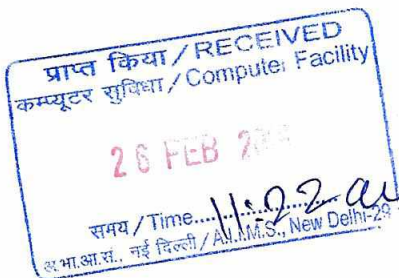 प्राप्त किया / RECEIVED
कम्प्यूटर सुविधा / Computer Facility
26 FEB
समय / Time.... 11:22 am
अ.भा.आ.सं., नई दिल्ली / A.I.I.M.S., New Delhi-29